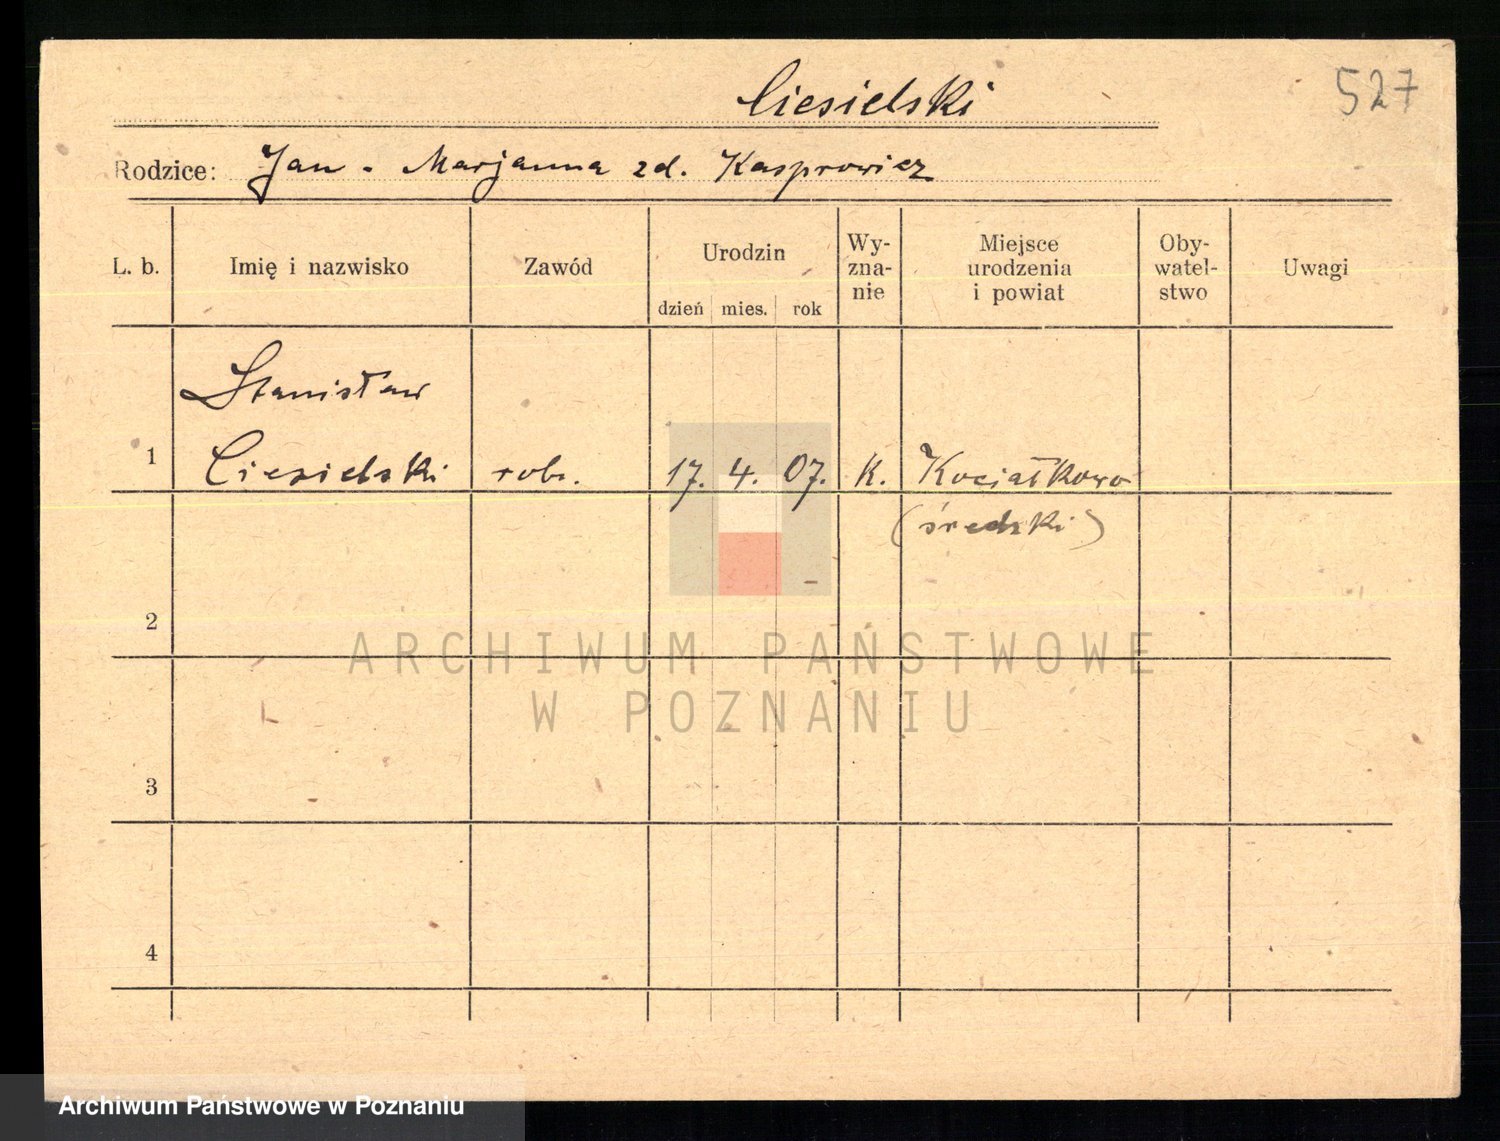 Ciesielski
527
Rodzice: Jan - Marjanna zd. Kasprowicz
L. b.
Imię i nazwisko
Zawód
Urodzin
dzień mies. rok
Wy-
zna-
nie
Miejsce
urodzenia
i powiat
Oby-
watel-
stwo
Uwagi
Stanisław
1 Ciesielski rob. 17. 4. 07. K. Kociałkowo
(średzki)
2
ARCHIWUM PAŃSTWOWE
W POZNANIU
3
4
Archiwum Państwowe w Poznaniu